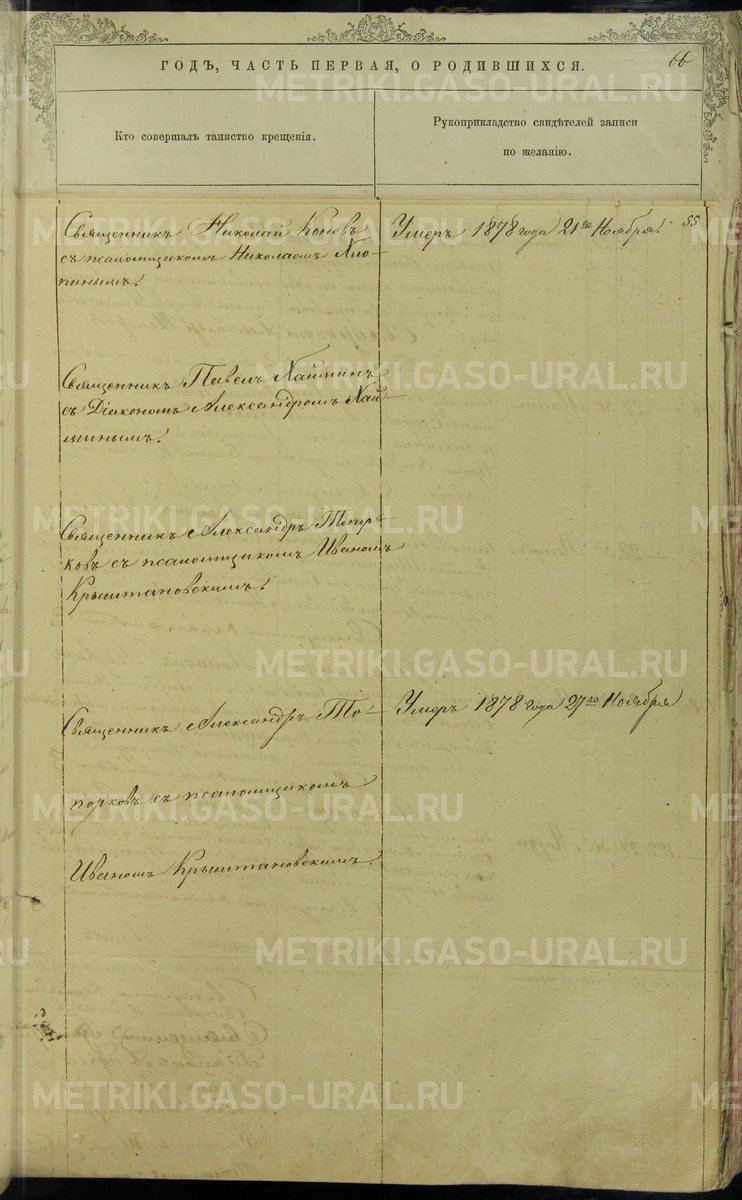 ГОДЪ, ЧАСТЬ ПЕРВАЯ, О РОДИВШИХСЯ.
66
Кто совершалъ таинство крещенія.
Рукоприкладство свидѣтелей записи
по желанію.
Священникъ Николай Коневъ
съ псаломщикомъ Николаемъ Хио-
пинымъ.
Умеръ 1878 года 21го Ноября.
55
Священникъ Павелъ Хайминъ
съ Діакономъ Александромъ Хай-
минымъ.
Священникъ Александръ Топор-
ковъ съ псаломщикомъ Иваномъ
Крыштановскимъ.
Священникъ Александръ То-
порковъ съ псаломщикомъ
Иваномъ Крыштановскимъ.
Умеръ 1878 года 27го Ноября
METRIKI.GASO-URAL.RU